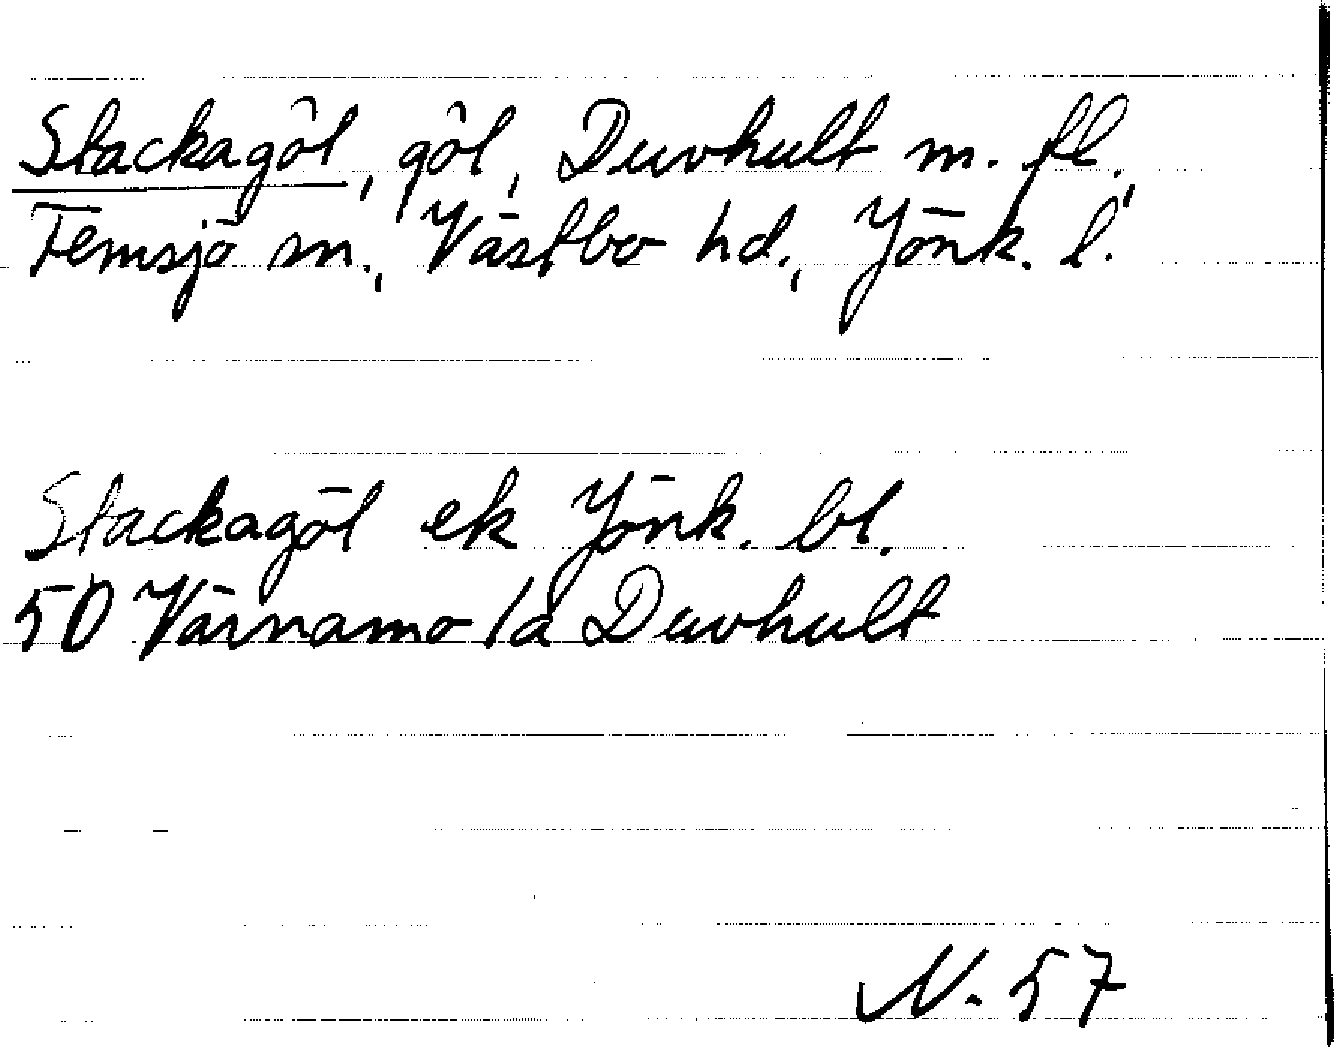 Stackagöl, göl, Duvhult m. fl.,
Femsjö sn., Västbo hd., Jönk. l.
Stackagöl ek Jönk. bl.
50 Värnamo /a Duvhult
N. 57